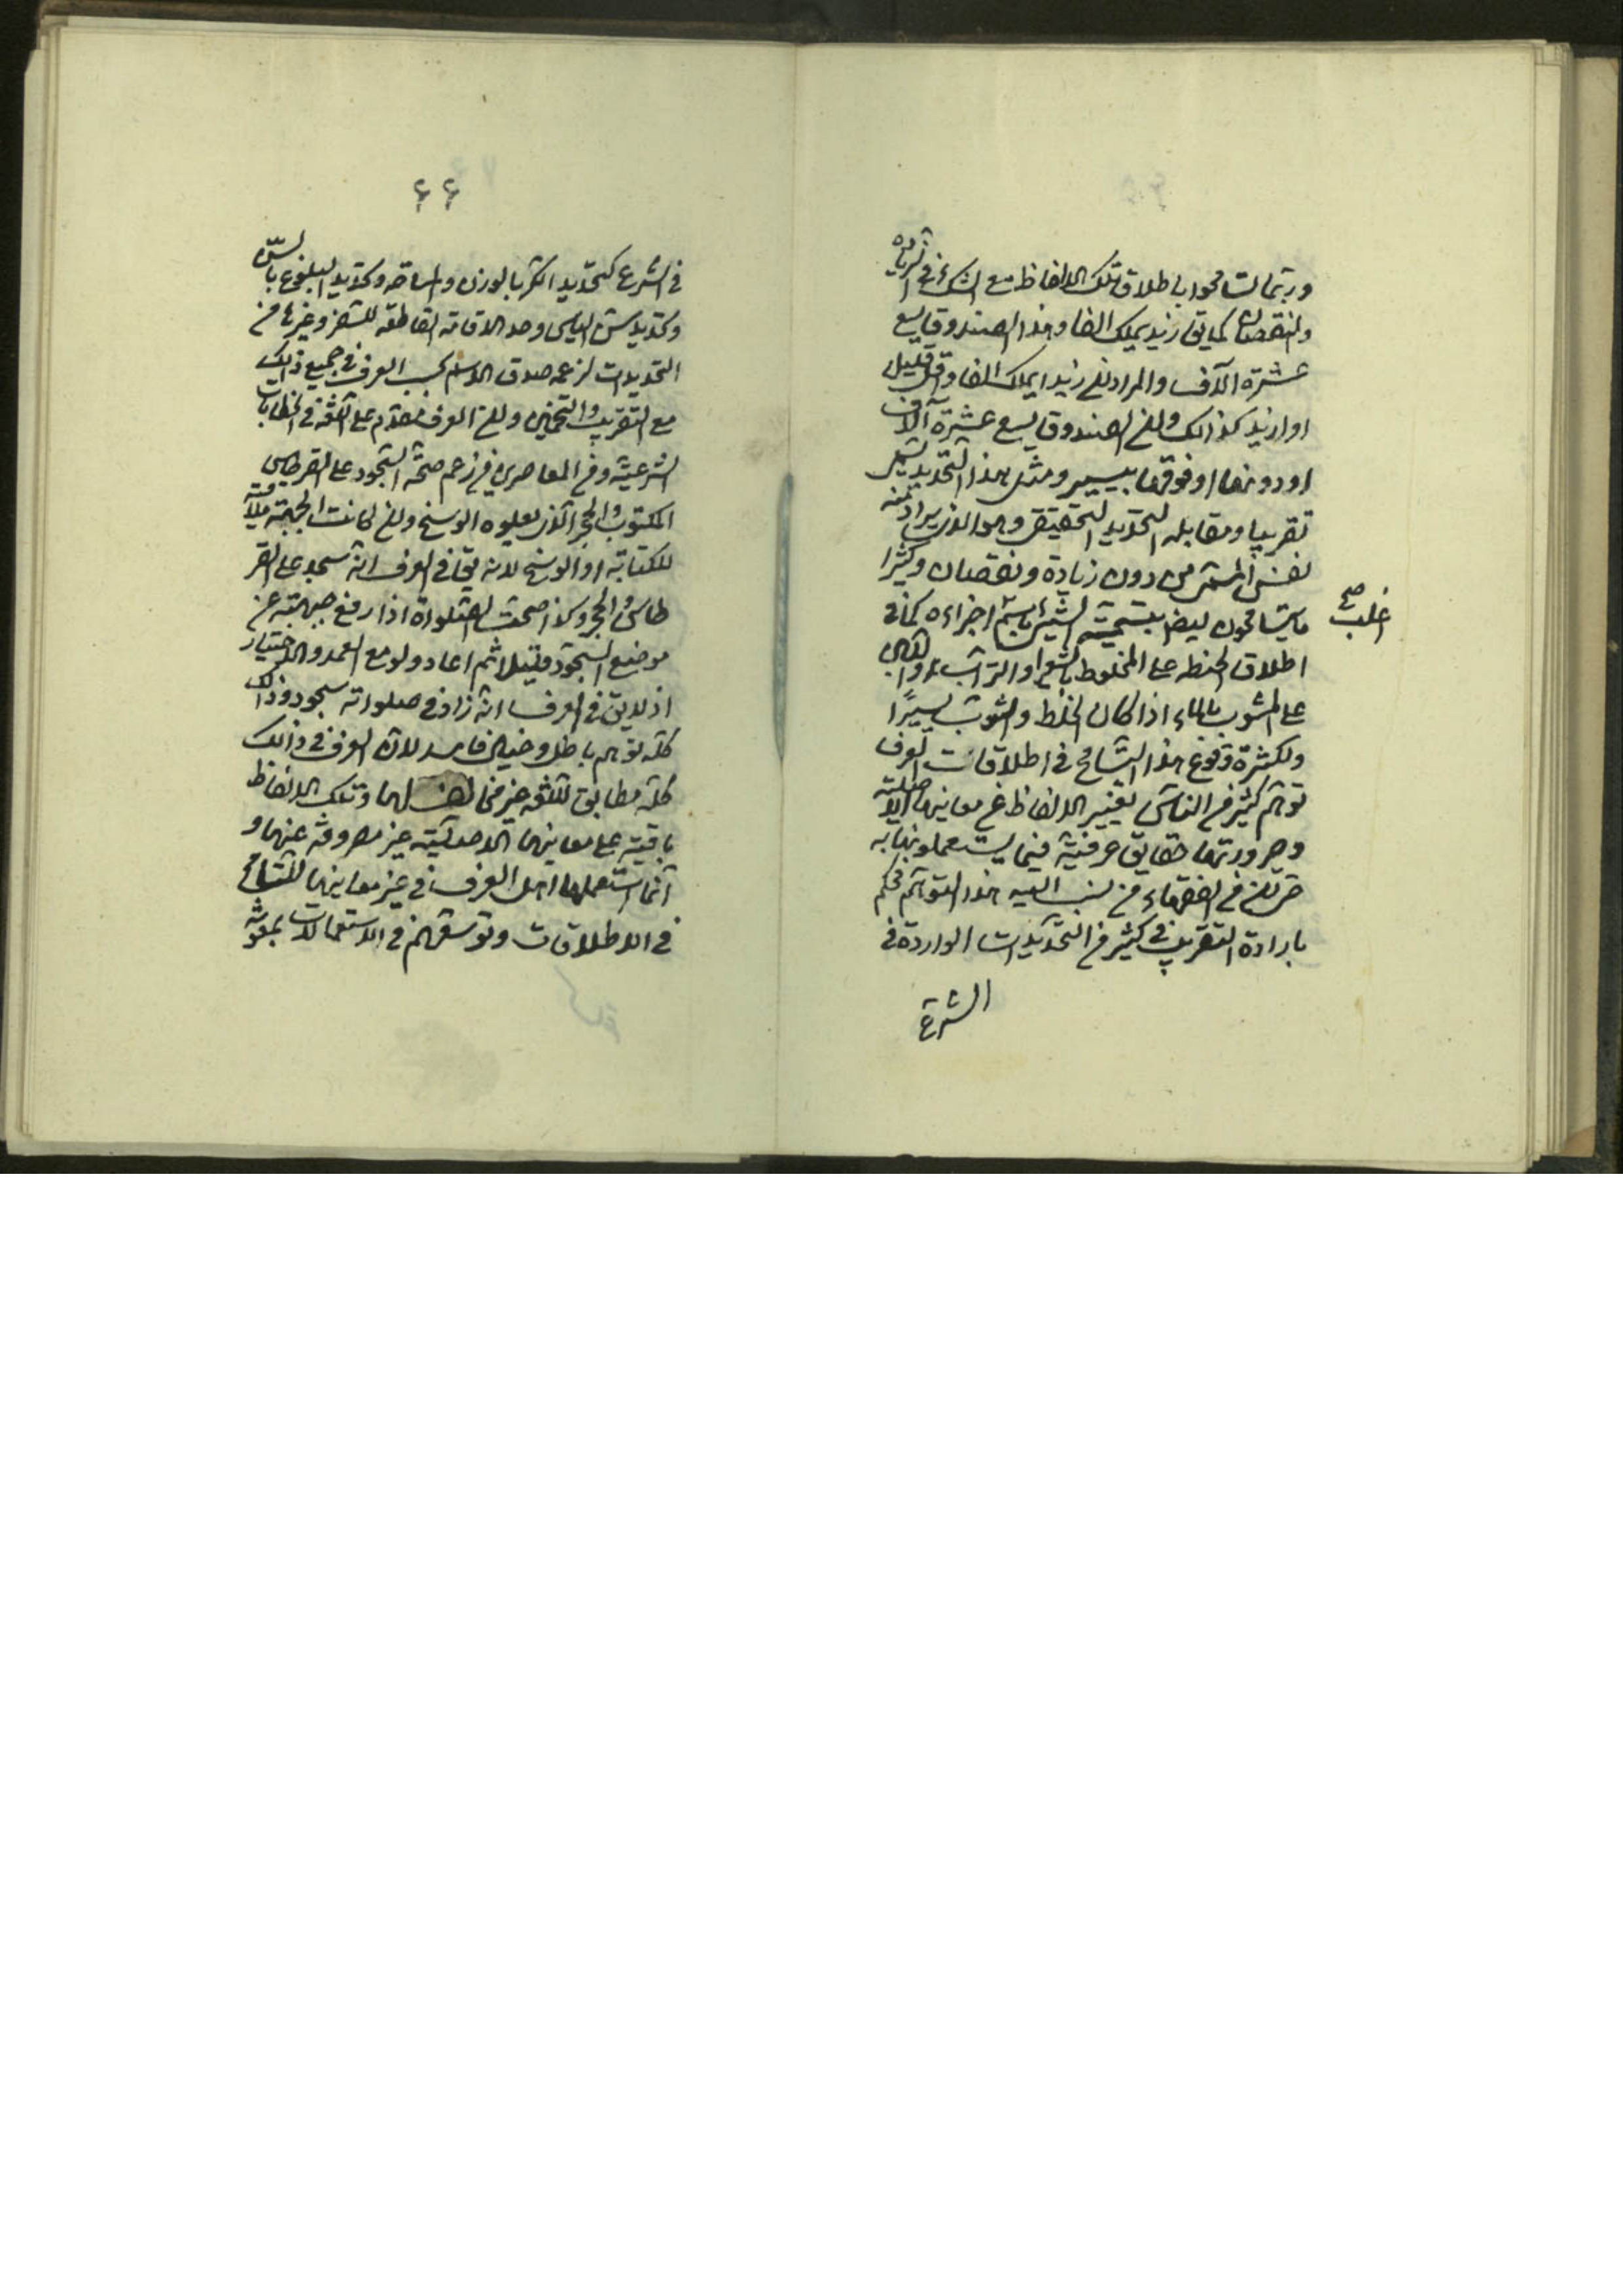 وربّما تسامحوا باطلاق تلك الالفاظ مع الشك في الزيادة
والنقصان كما يق زيد يملك الفا وهذا الصندوق يسع
عشرة آلاف والمراد ان زيدا يملك الفا واقل بقليل
او ازيد كذالك وان الصندوق يسع عشرة آلاف
او دونها او فوقها بيسير ومثل هذا التحديد يسمى
تقريبا ومقابله التحديد التحقيقى وهو الذى يراد منه
نفس المسمّى من دون زيادة ونقصان وكثيرا
ما يتسامحون ايضا بتسمية الشئ باسم اجزاءه كما فى
اغلب صح
اطلاق الحنطه على المخلوط بالشعير او التراب واللبن
على المشوب بالماء اذا كان الخلط والشوب يسيرًا
ولكثرة وقوع هذا التسامح فى اطلاقات العرف
توهّم كثير من الناس تغيير الالفاظ عن معانيها الاصلية
وصيرورتها حقايق عرفيّة فيما يستعملونها به
حتى ان من الفقهاء من نسب اليه هذا التوهّم فحكم
بارادة التقريب فى كثير من التحديدات الواردة فى
الشرع
٤٤
فى الشرع كتحديد الكر بالوزن والمساحه وكتحديد البلوغ بالسنّ
وكتحديد سنّ الياس وحد الاقامة القاطعه للسفر وغيرها من
التحديدات لزعمه صدق الاسم بحسب العرف فى جميع ذالك
مع التقريب والتخمين وان العرف مقدّم على اللغة فى الخطابات
الشرعيّة ومن المعاصرين من زعم صحّة السّجود على القرطاس
المكتوب والحجر الّذى يعلوه الوسخ وان كانت الجبهة ملاقية
للكتابة او الوسخ لانه يق فى العرف انّه سجد على القر
طاس والحجر وكذا صحّت الصّلواة اذا رفع جبهته عن
موضع السّجود قليلا ثم اعاد ولو مع العمد والاختيار
اذ لا يق فى العرف انّه زاد فى صلواته سجود وذالك
كلّه توهم باطل وخيال فاسد لان العرف فى ذالك
كلّه مطابق للّغه غير مخالف لها وتلك الالفاظ
باقية على معانيها الاصليّة غير مصروفة عنها و
انّما استعملها اهل العرف فى غير معانيها للتسامح
فى الاطلاقات وتوسّعهم فى الاستعمالات بمعونة